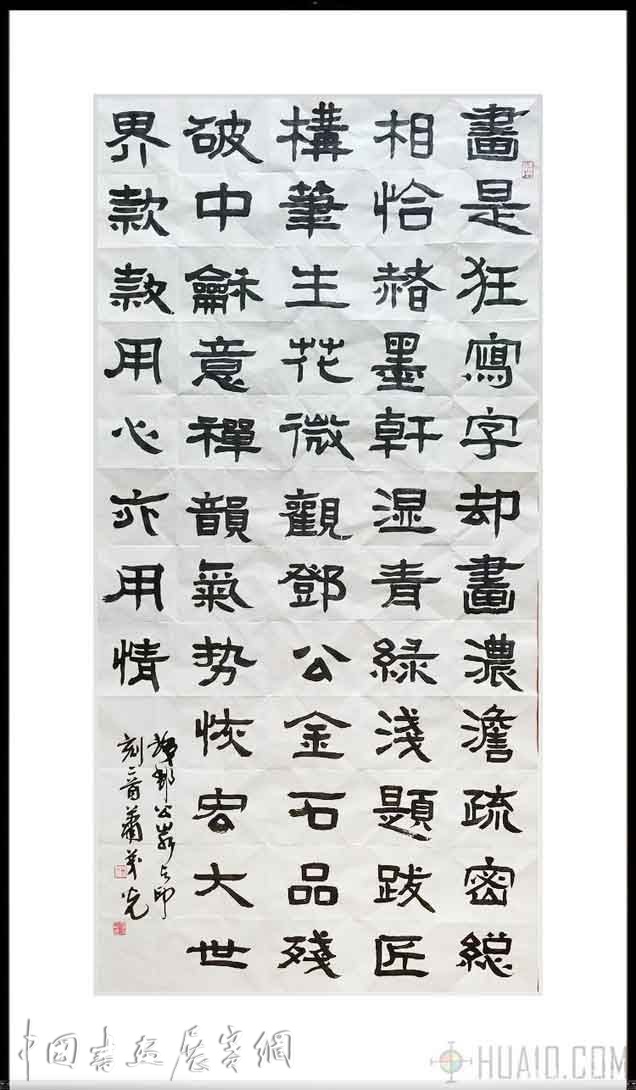 畫是狂寫字却畫濃澹疏密総
相恰赭墨軒湿青緑淺題跋匠
構筆生花微觀鄧公金石品殘
破中龢意禪韻氣势恢宏大世
界款款用心亦用情
鄧公印
刻二首萧光
中国書画展賽網
HUA10.COM